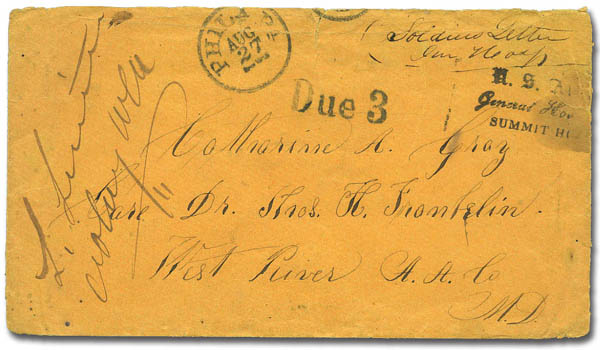 PHILA PA
AUG
27
Soldiers Letter
Gen. Hosp
Due 3
U. S. A.
General Hos
SUMMIT HO
Catharine A. Gray
Care Dr. Thos. H. Franklin.
West River A. A. Co
M.D.